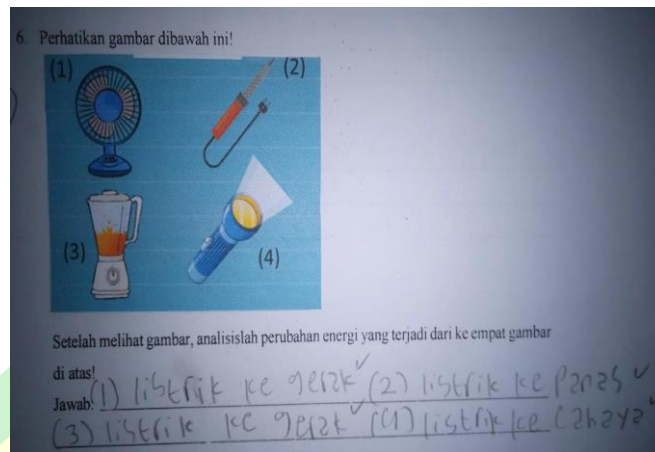 6. Perhatikan gambar dibawah ini!
(1) (2)
(3) (4)
Setelah melihat gambar, analisislah perubahan energi yang terjadi dari ke empat gambar
di atas!
Jawab: (1) listrik ke gerak (2) listrik ke panas
(3) listrik ke gerak (4) listrik ke cahaya